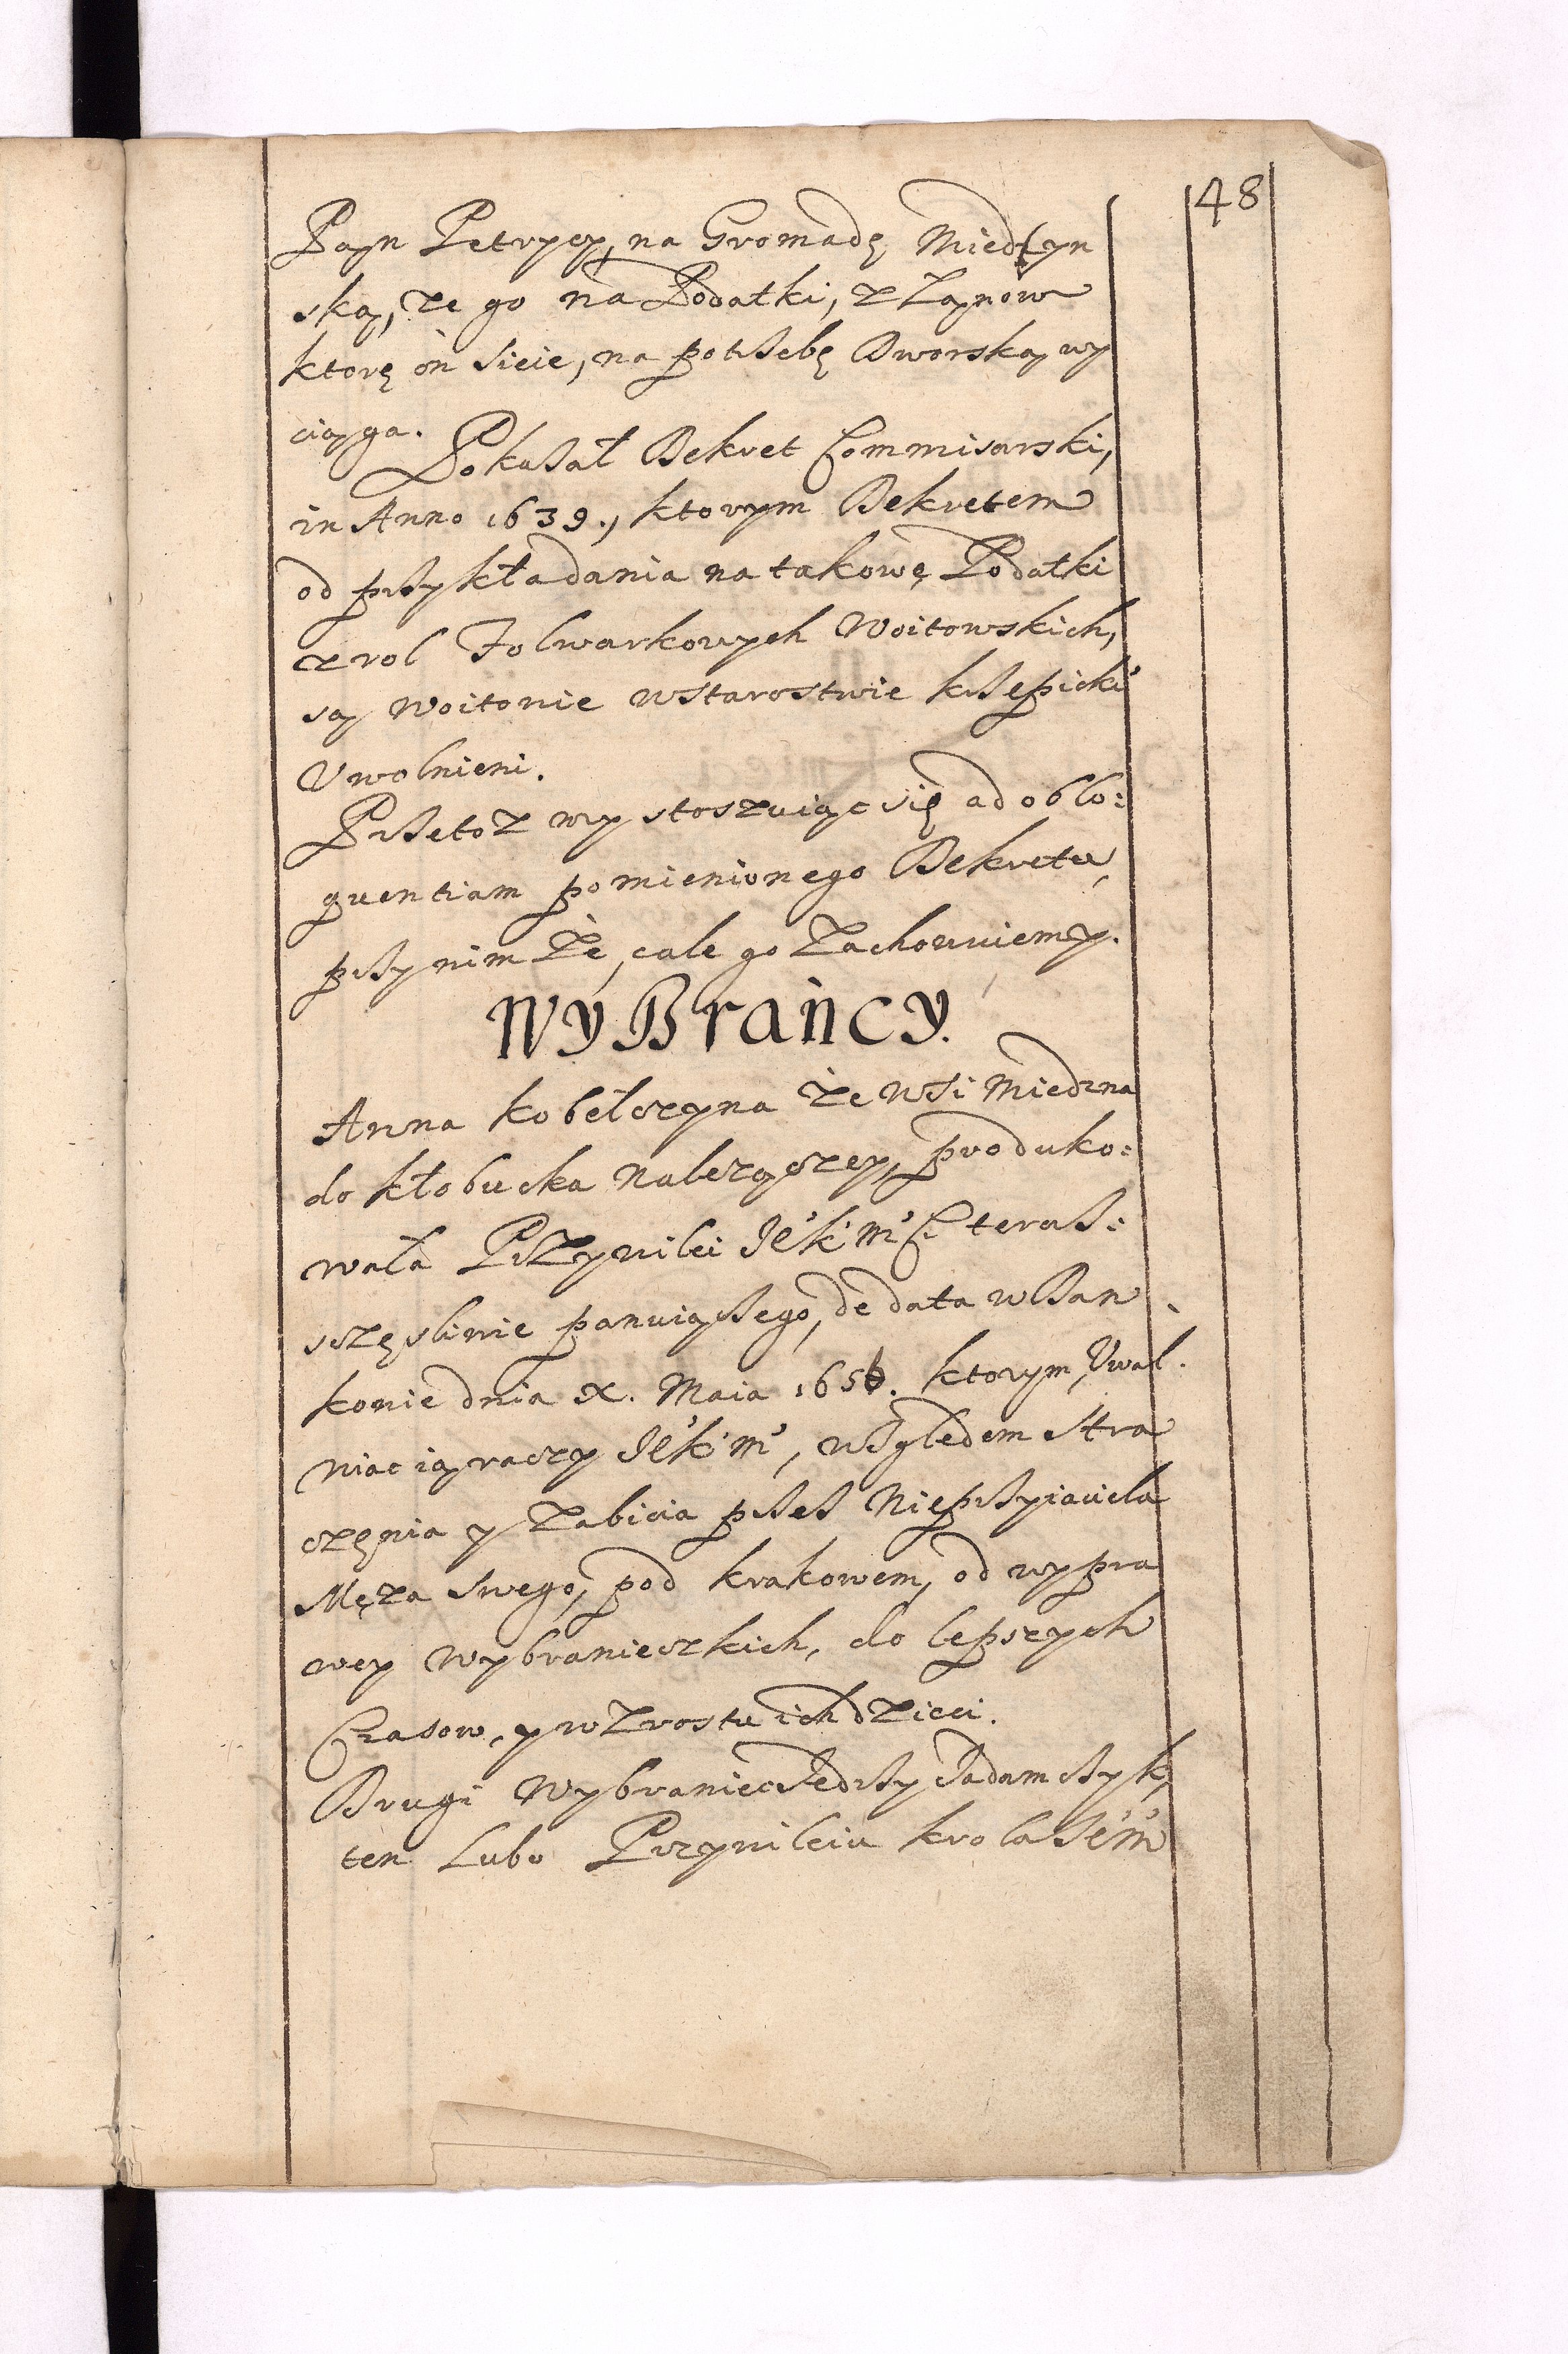 48
Pan Petrycy, na Gromadę Miedzyn
ską, ze go na Podatki, z Łanow
ktorę on Sieie, na potrzebę Dworską wy
ciąga.
Pokazał Dekret Commisarski,
in Anno 1639., ktorym Dekretem
od przykładania na takowę Podatki
z rol Folwarkowych Woitowskich,
są Woitowie w Starostwie krzepickiʼ
Uwolnieni.
Przetoz my stoszuiąc się ad oblo:
quentiam pomienionego Dekretu,
przy nim ze, cale go zachowuiemy.
WyBrańcy.
Anna kobełczyna ze wsi Miedzna
do kłobucka nalezączey, produko:
wała Przywilei JeʼkʼMʼCi teraz:
szczęsliwie panuiączego, de data w Dan
konie dnia X. Maia 1656. ktorym, Uwal.
niac ią raczy JeʼkʼMʼ, względem stra
częnia y zabicia przez Nieprzyiaciela
Męza swego, pod krakowem, od wypra
wey wybranieczkich, do lepszych
Czasow, y wzrostu ich dzieci.
Drugi Wybraniec Jędrzy Adamczyk,
ten Lubo Przywileiu krola JeʼMʼ